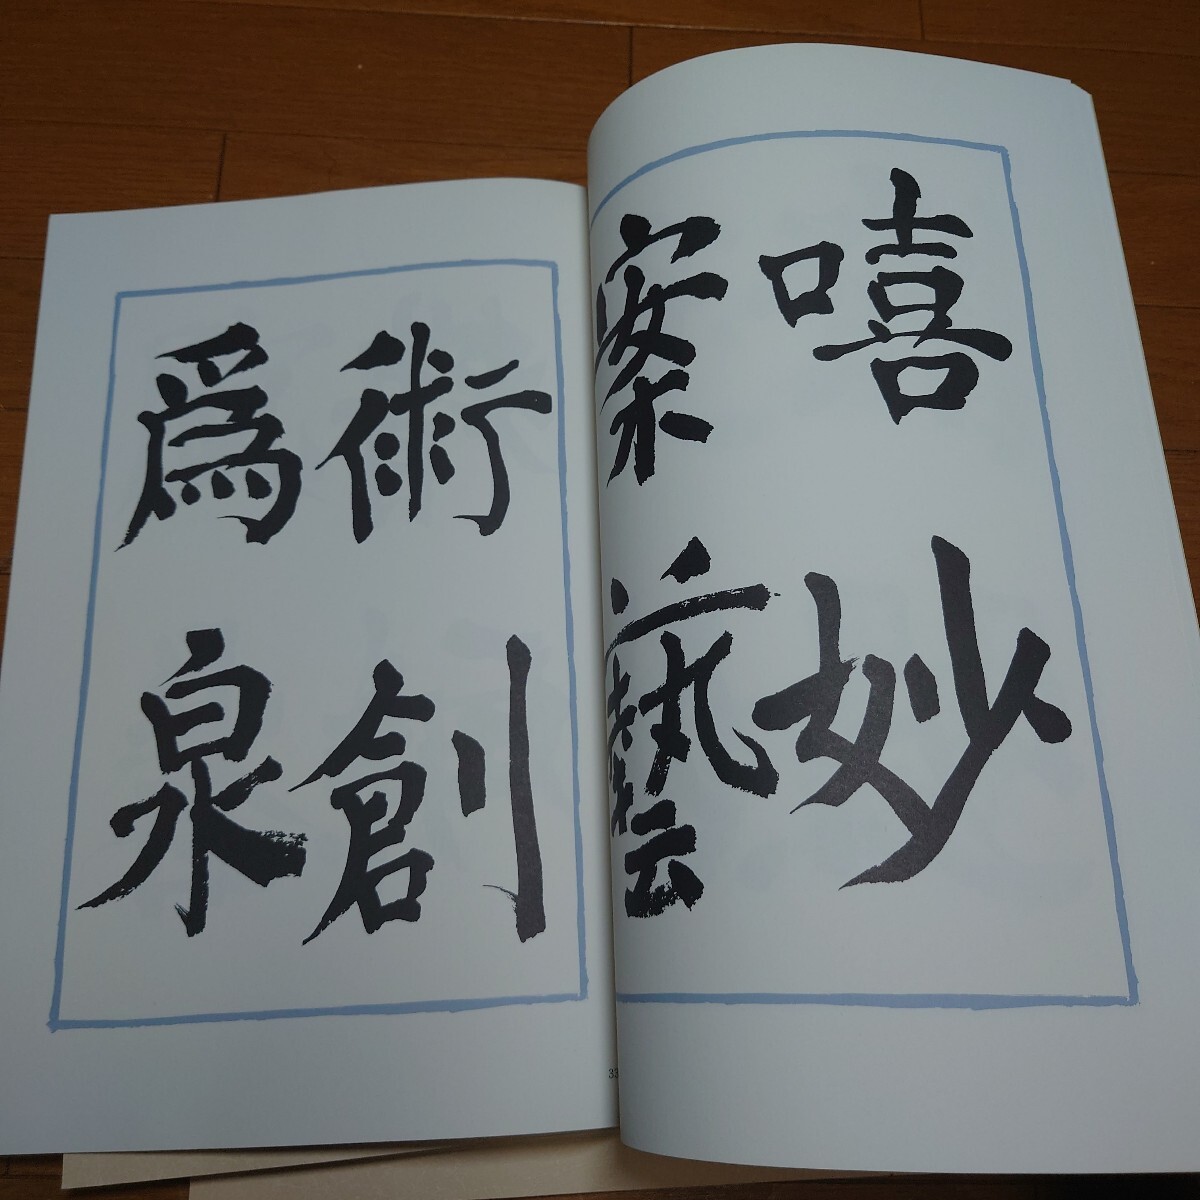 嘻妙
案藝
術創
爲泉